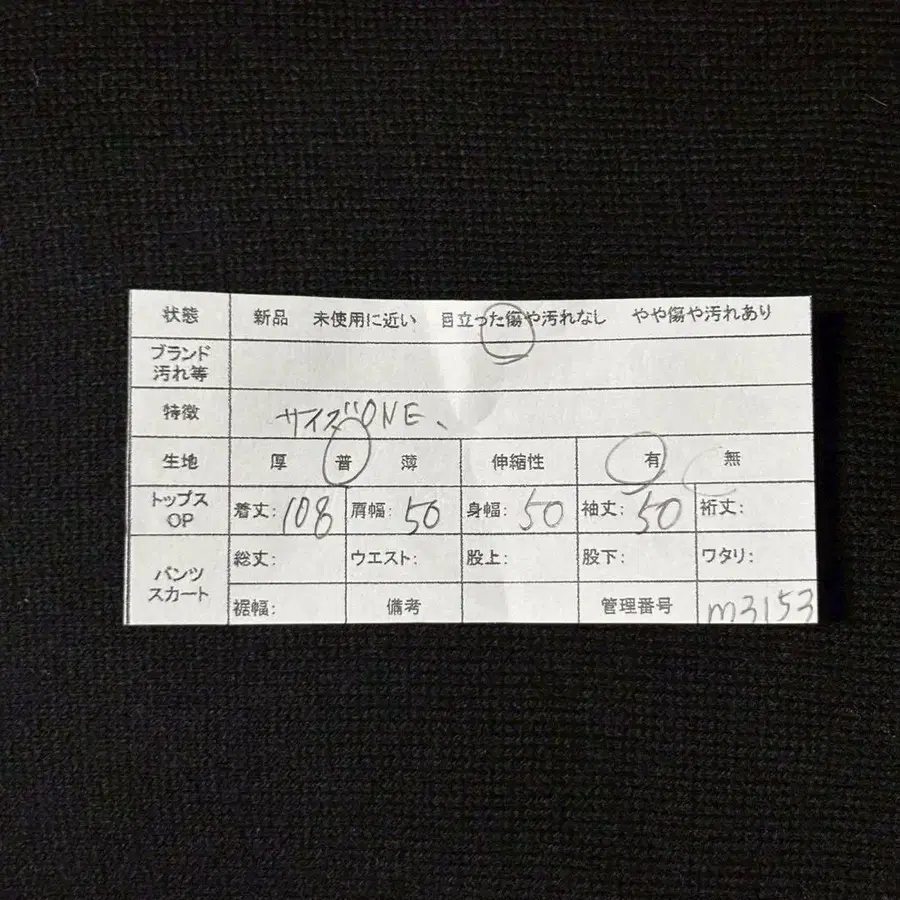 状態 新品 未使用に近い 目立った傷や汚れなし やや傷や汚れあり
ブランド
汚れ等
特徴 サイズONE、
生地 厚 普 薄 伸縮性 有 無
トップス
OP
着丈: 108 肩幅: 50 身幅: 50 袖丈: 50 裄丈:
パンツ
スカート
総丈: ウエスト: 股上: 股下: ワタリ:
裾幅: 備考 管理番号 m3153